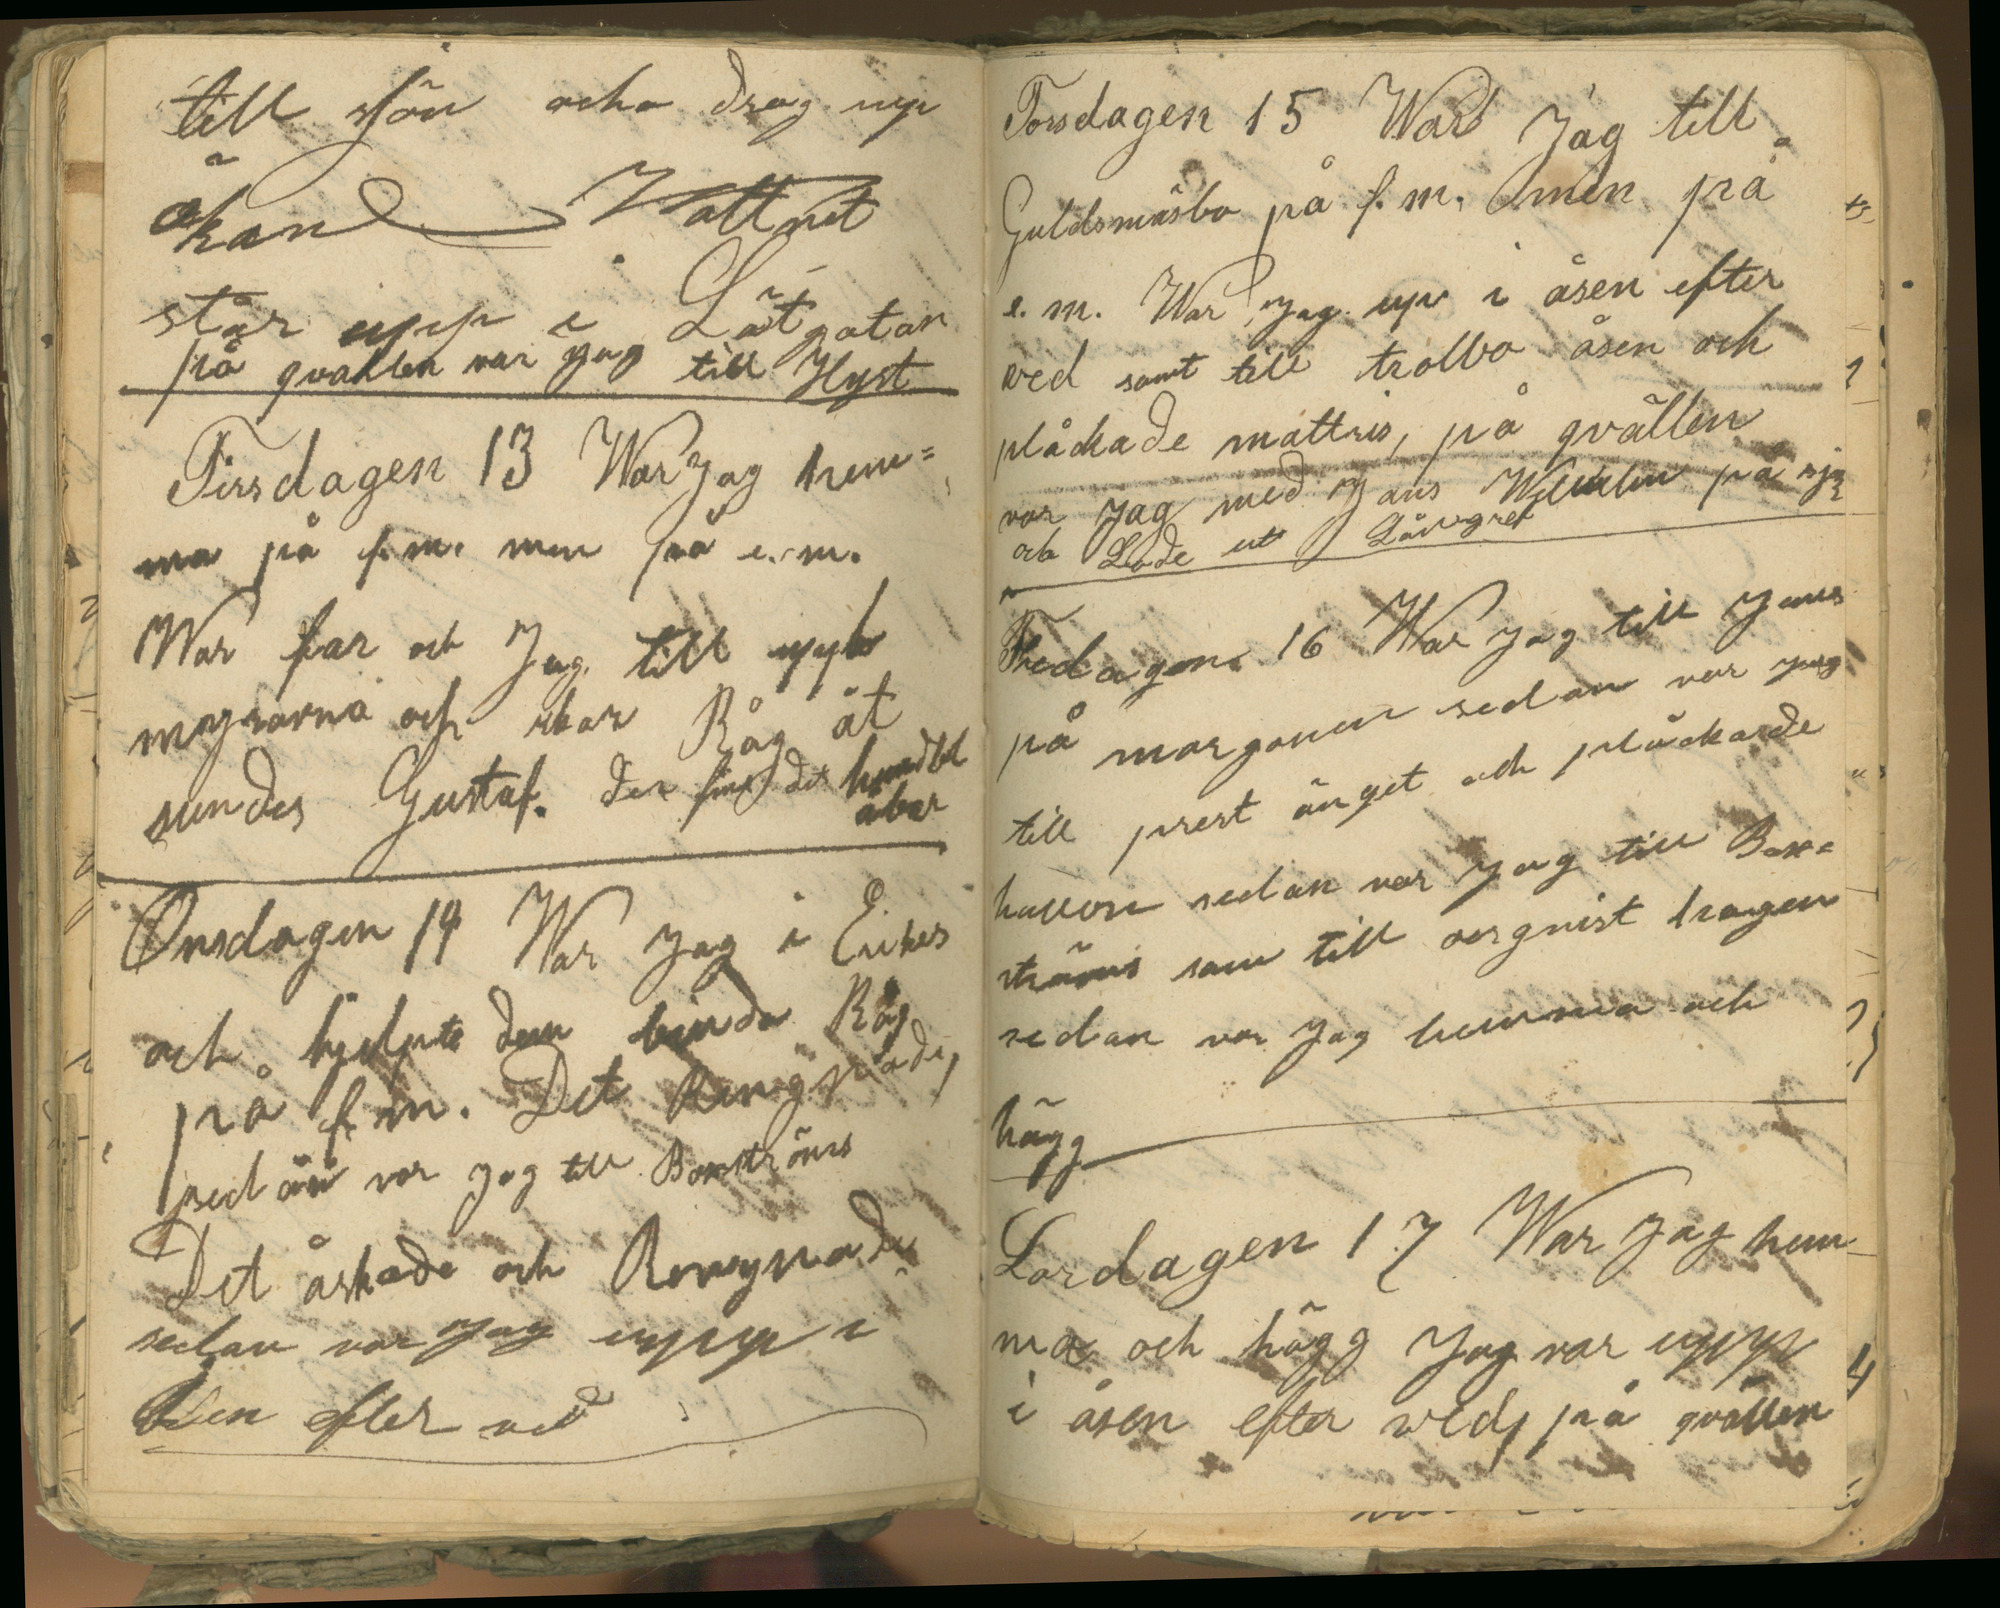 till sjön ocho drog up
ökand Vattnet
står upp i Låtgatan
på qvällen var jag till Hyst
Tirsdagen 13 War Jag hem=
ma på f.m. men på e.m.
War far och Jag till
myrarna och skar Råg åt
sundes Gustaf. der fins det
åbär
Onsdagen 14 War Jag i Erikes
och hjelpte dem binda Råg
på f.m. Det Rengnade,
sedan var Jag till Boxströms
Det åskade och Rengnade
sedan var Jag upp i
åsen efter ved
Torsdagen 15 War Jag till
Guldsmäsbo på f.m. men på
e.m. War Jag up i åsen efter
wed samt till trollbo åsen och
plåckade mattris, på qvällen
var Jag med Jans Wilhelm på sjö
och Lade ut Långref
Fredagen 16 War Jag till Jans
på morgonen sedan var jag
till prest änget och plåckade
hallon sedan var Jag till Box=
ströms sam till hagen
sedan var Jag hemma och
högg
Lordagen 17 War Jag hem
ma och högg Jag var upp
i åsen efter wed, på qvällen